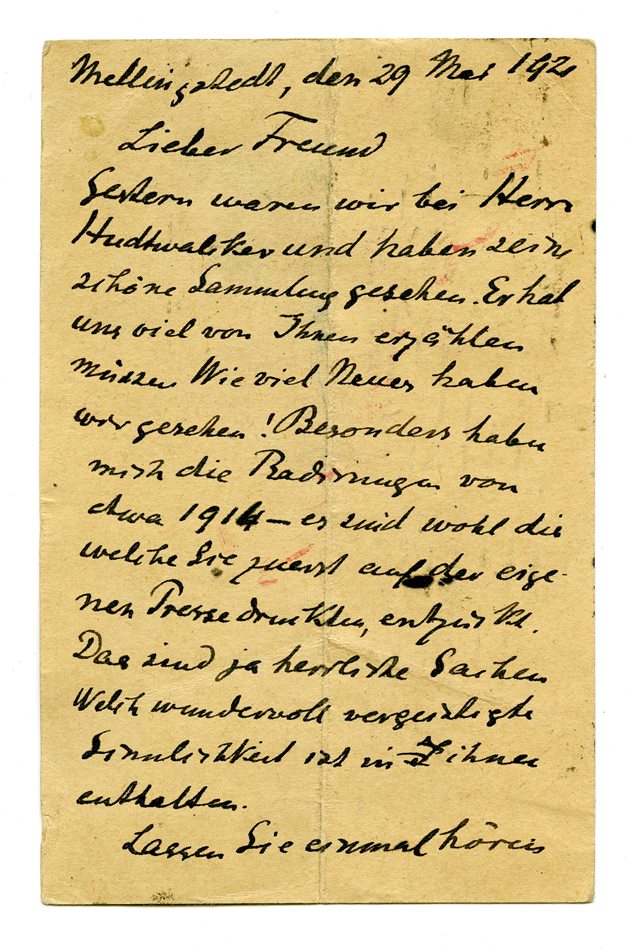 Mellingstedt, den 29 Mai 192
Lieber Freund
Gestern waren wir bei Herrn
Hudtwalcker und haben seine
schöne Sammlung gesehen. Er hat
uns viel von Ihnen erzählen
müssen. Wie viel Neues haben
wir gesehen! Besonders haben
mich die Radirungen von
etwa 1914 – es sind wohl die
welche Sie zuerst auf der eige-
nen Presse druckten, entzückt.
Das sind ja herrliche Sachen
Welch wundervoll vergeistigte
Sinnlichkeit ist in ihnen
enthalten.
Lassen Sie einmal hören